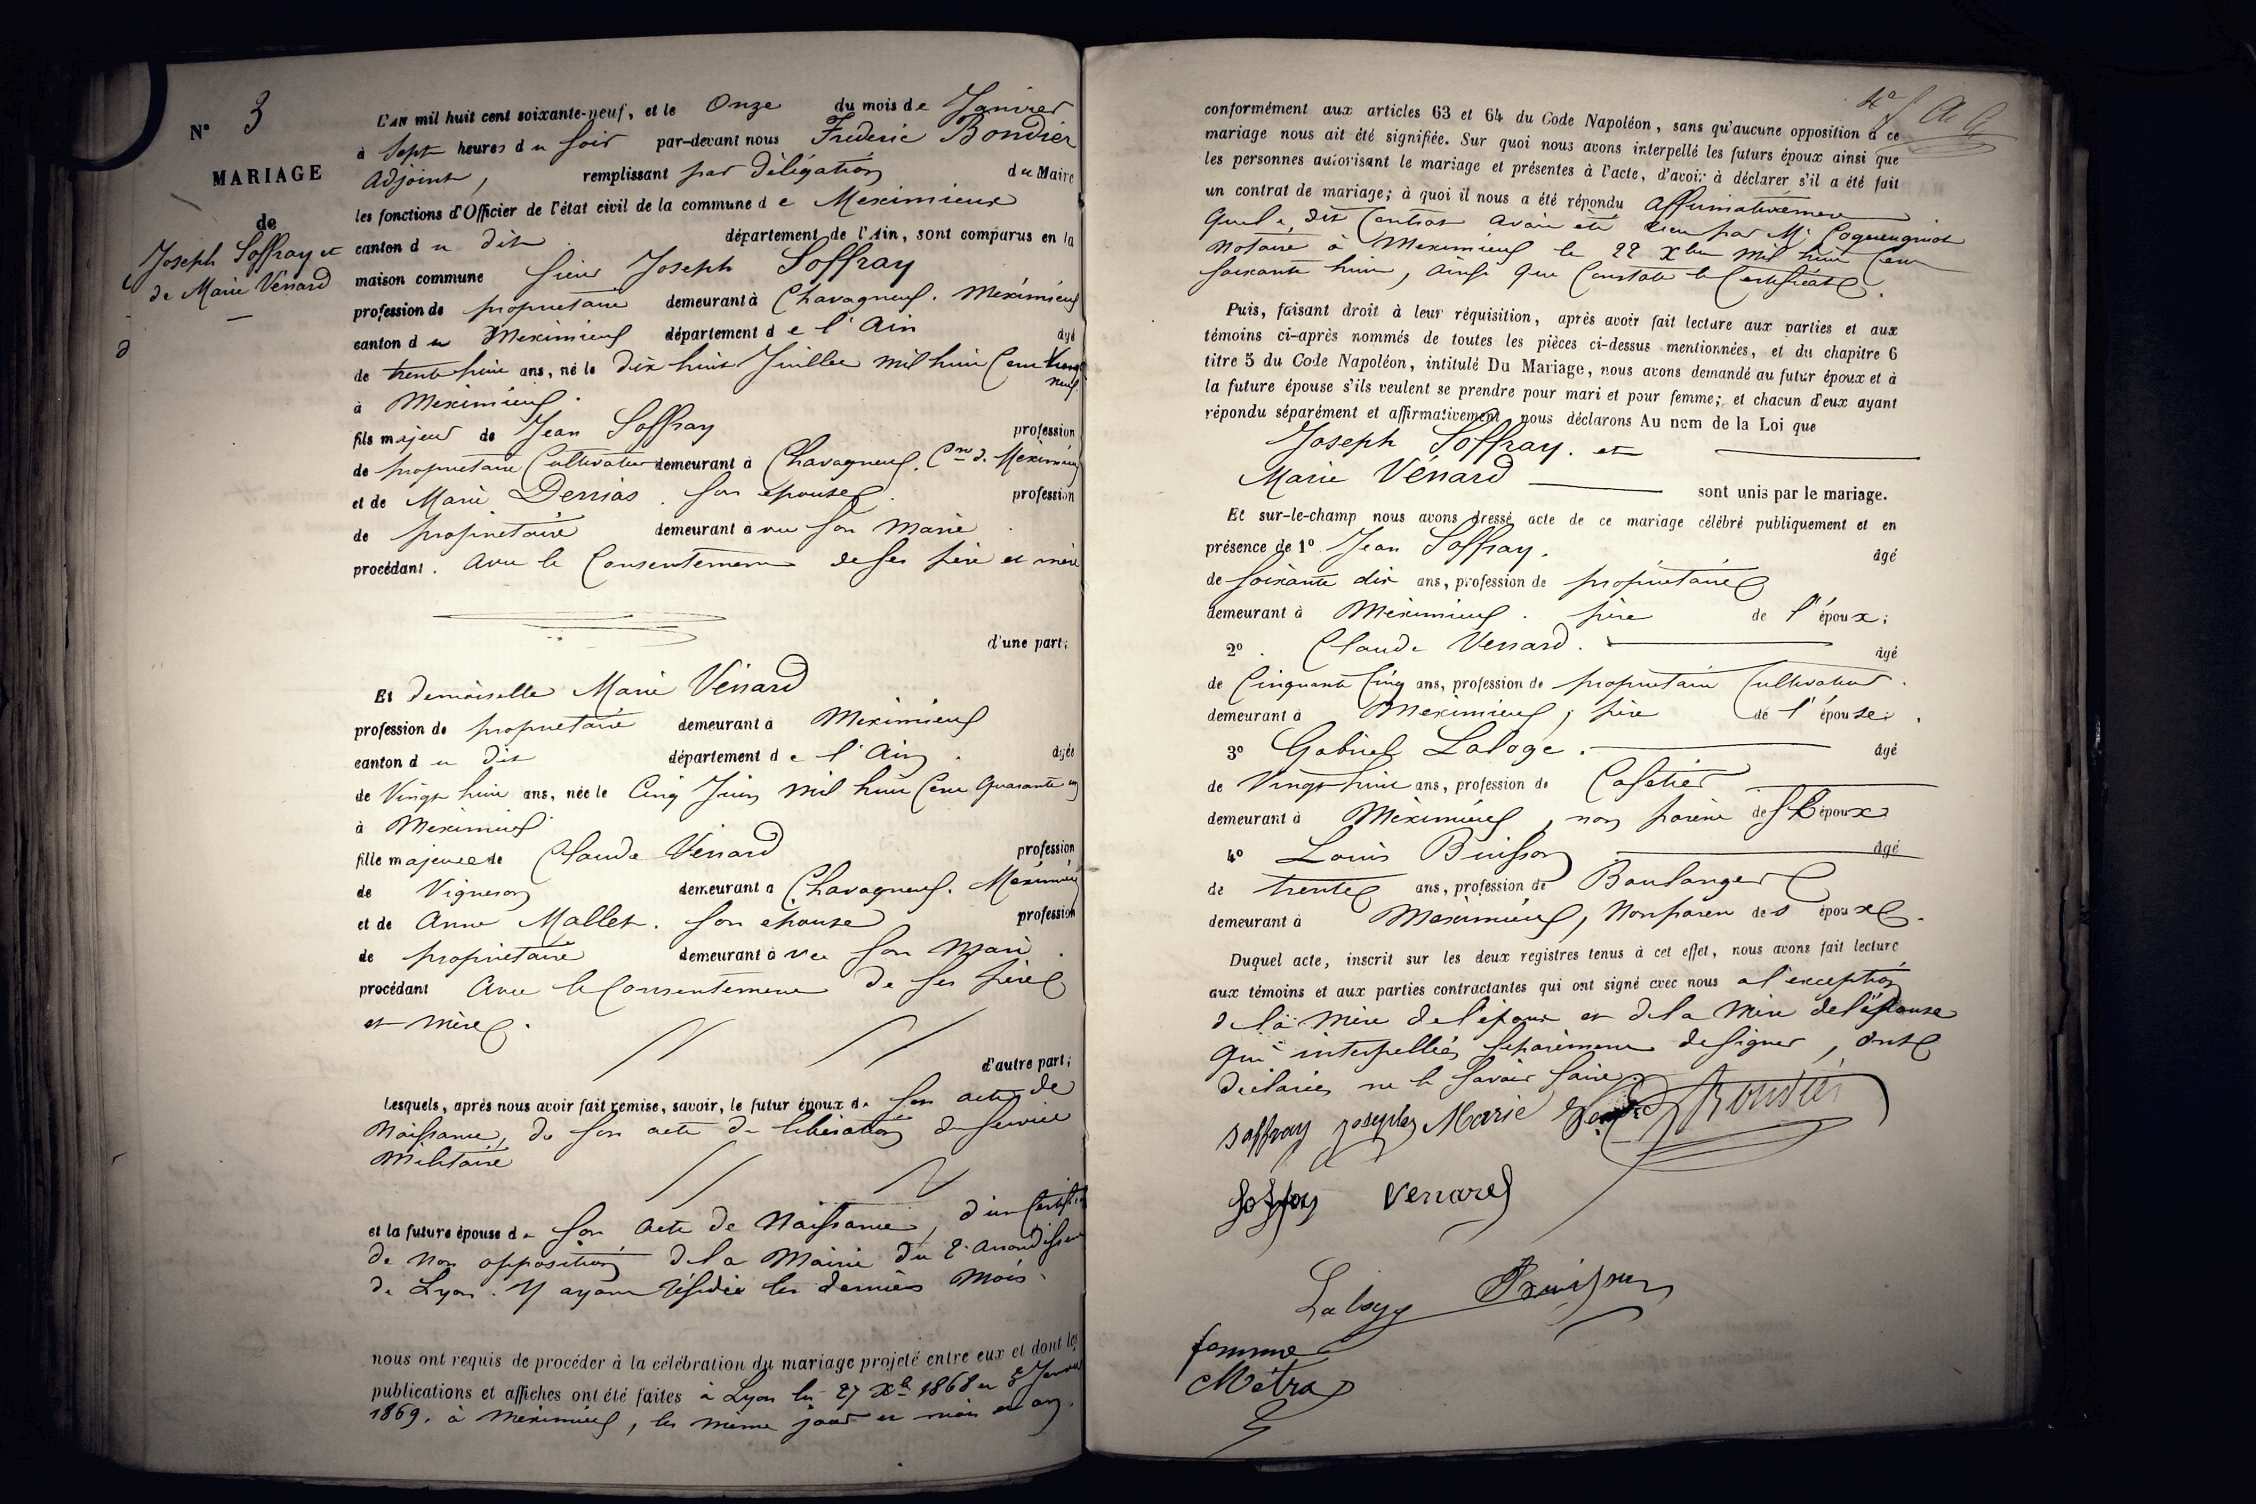 N° 3
MARIAGE
de
Joseph Soffray et
de Marie Vénard
L'AN mil huit cent soixante-neuf, et le Onze du mois de Janvier
à Sept heures du soir par-devant nous Frederic Bondier
Adjoint, remplissant par délégation du Maire
les fonctions d'Officier de l'état civil de la commune de Meximieux
canton du dit département de l'Ain, sont comparus en la
maison commune sieur Joseph Soffray
profession de propriétaire demeurant à Chavagneux. Meximieux
canton de Meximieux département de l'Ain âgé
de trente huit ans, né le dix huit Juillet mil huit Cent trente
neuf
à Meximieux.
fils majeur de Jean Soffray profession
de propriétaire Cultivateur demeurant à Chavagneux. Cne de Meximieux
et de Marie Derrias. Son épouse profession
de propriétaire demeurant avec son Marie
procédant. avec le Consentement de ses père et mère
d'une part;
Et demoiselle Marie Vénard
profession de propriétaire demeurant à Meximieux
canton du dit département de l'Ain. âgée
de Vingt huit ans, née le Cinq Juin mil huit Cent quarante un
à Meximieux
fille majeure de Claude Vénard profession
de Vigneron demeurant à Chavagneux. Meximieux
et de Anne Mallet. Son épouse profession
de propriétaire demeurant avec son Mari.
procédant avec le Consentement de ses père
et mère.
d'autre part;
Lesquels, après nous avoir fait remise, savoir, le futur époux de son acte de
Naissance, de son acte de libération du service
Militaire
et la future épouse de son acte de Naissance, d'un Certificat
de non opposition de la Mairie du 2e arrondissement
de Lyon. Y ayant résidée les derniers Mois.
nous ont requis de procéder à la célébration du mariage projeté entre eux et dont les
publications et affiches ont été faites à Lyon les 27 Xbre 1868 et 3 Janvier
1869. à Meximieux, les même jour et mois et an.
conformément aux articles 63 et 64 du Code Napoléon, sans qu'aucune opposition à ce
mariage nous ait été signifiée. Sur quoi nous avons interpellé les futurs époux ainsi que
les personnes autorisant le mariage et présentes à l'acte, d'avoir à déclarer s'il a été fait
un contrat de mariage; à quoi il nous a été répondu affirmativement
que le dit Contrat avait été reçu par Me
Notaire à Meximieux le 22 Xbre mil huit Cent
soixante huit, ainsi que Constate le Certificat.
Puis, faisant droit à leur réquisition, après avoir fait lecture aux parties et aux
témoins ci-après nommés de toutes les pièces ci-dessus mentionnées, et du chapitre 6
titre 5 du Code Napoléon, intitulé Du Mariage, nous avons demandé au futur époux et à
la future épouse s'ils veulent se prendre pour mari et pour femme; et chacun d'eux ayant
répondu séparément et affirmativement, nous déclarons Au nom de la Loi que
Joseph Soffray. et
Marie Vénard sont unis par le mariage.
Et sur-le-champ nous avons dressé acte de ce mariage célébré publiquement et en
présence de 1° Jean Soffray. âgé
de soixante dix ans, profession de propriétaire
demeurant à Meximieux. père de l'époux;
2°. Claude Venard. âgé
de Cinquante Cinq ans, profession de propriétaire Cultivateur.
demeurant à Meximieux, père de l'épouse;
3° Gabriel Laloge. âgé
de Vingt huit ans, profession de Cafetier
demeurant à Meximieux, non parent des époux
4° Louis Buisson âgé
de trente ans, profession de Boulanger
demeurant à Meximieux, Non parent des époux.
Duquel acte, inscrit sur les deux registres tenus à cet effet, nous avons fait lecture
aux témoins et aux parties contractantes qui ont signé avec nous à l'exception
de la Mère de l'époux et de la Mère de l'épouse
qui interpellées séparément de signer, ont
déclarées ne le savoir faire.
Soffray Joseph Marie Bondier
Soffray Venard
Laloge Buisson
femme
Métra